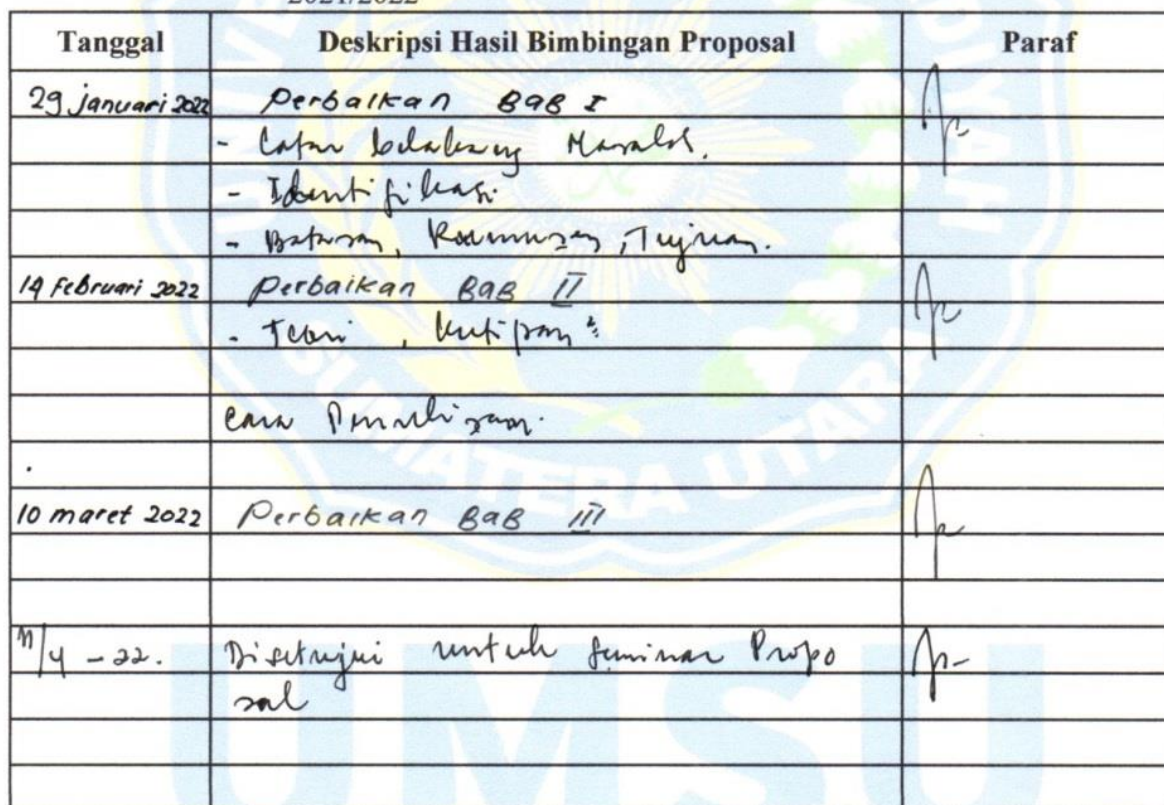 2021/2022
Tanggal Deskripsi Hasil Bimbingan Proposal Paraf
29 januari 2022 Perbaikan BAB I
- Latar belakang Masalah.
- Identifikasi
- Batasan, Rumusan, Tujuan.
14 Februari 2022 Perbaikan BAB II
- Teori, kutipan²
cara Penulisan.
10 maret 2022 Perbaikan BAB III
/4-22. Disetujui untuk Seminar Propo
sal
SUMATERA UTARA
UMSU